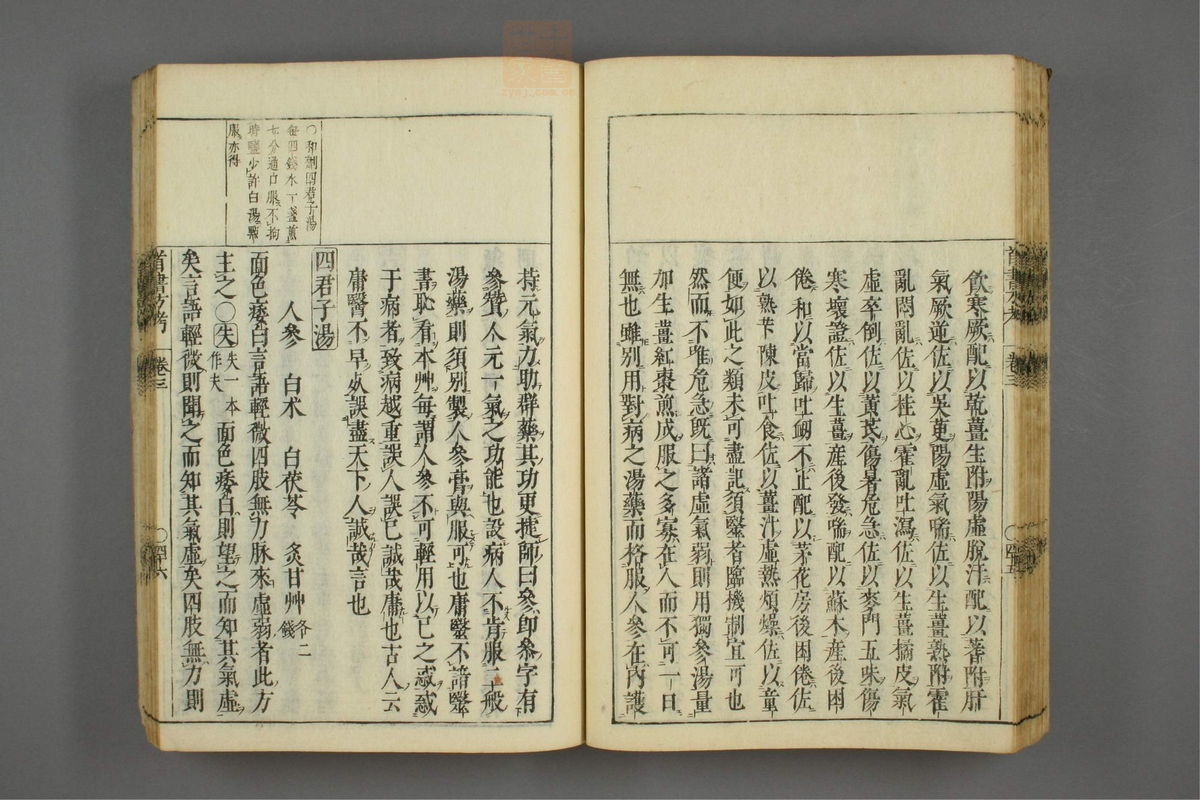 飲寒厥配以乾薑生附陽虛脫汗配以蓍附肝
氣厥逆佐以吳茰陽虛氣喘佐以生薑熟附霍
亂悶亂佐以桂心霍亂吐瀉佐以生薑橘皮氣
虛卒倒佐以黃芪傷暑危急佐以麥門五味傷
寒壞證佐以生薑産後發喘配以蘇木産後困
倦和以當歸吐衂不止配以茅花房後困倦佐
以熟苄陳皮吐食佐以薑汁虛熱煩燥佐以童
便如此之類未可盡記須醫者臨機制宜可也
然而不唯危急既曰諸虛氣弱則用獨參湯量
加生薑紅棗煎成服之多寡在人而不可一日
無也雖別用對病之湯藥而格服人參在內護
首書方考
卷三
〇四十五
持元氣力助群藥其功更捷師曰參卽叅字有
參贊人元一氣之功能也設病人不肯服一般
湯藥則須別製人參膏與服可也庸醫不諳醫
書恥看本艸每謂人參不可輕用以己之惑惑
于病者致病越重誤人誤己誠哉庸也古人云
庸醫不早死誤盡天下人誠哉言也
〇和劑四君子湯
每四錢水一盞煎
七分通口服不拘
時鹽少許白湯點
服亦得
四君子湯
人參 白术 白茯苓 炙甘艸各二錢
面色痿白言語輕微四肢無力脉來虛弱者此方
主之〇失失一本作夫面色痿白則望之而知其氣虛
矣言語輕微則聞之而知其氣虛矣四肢無力則
首書方考
卷三
〇四十六